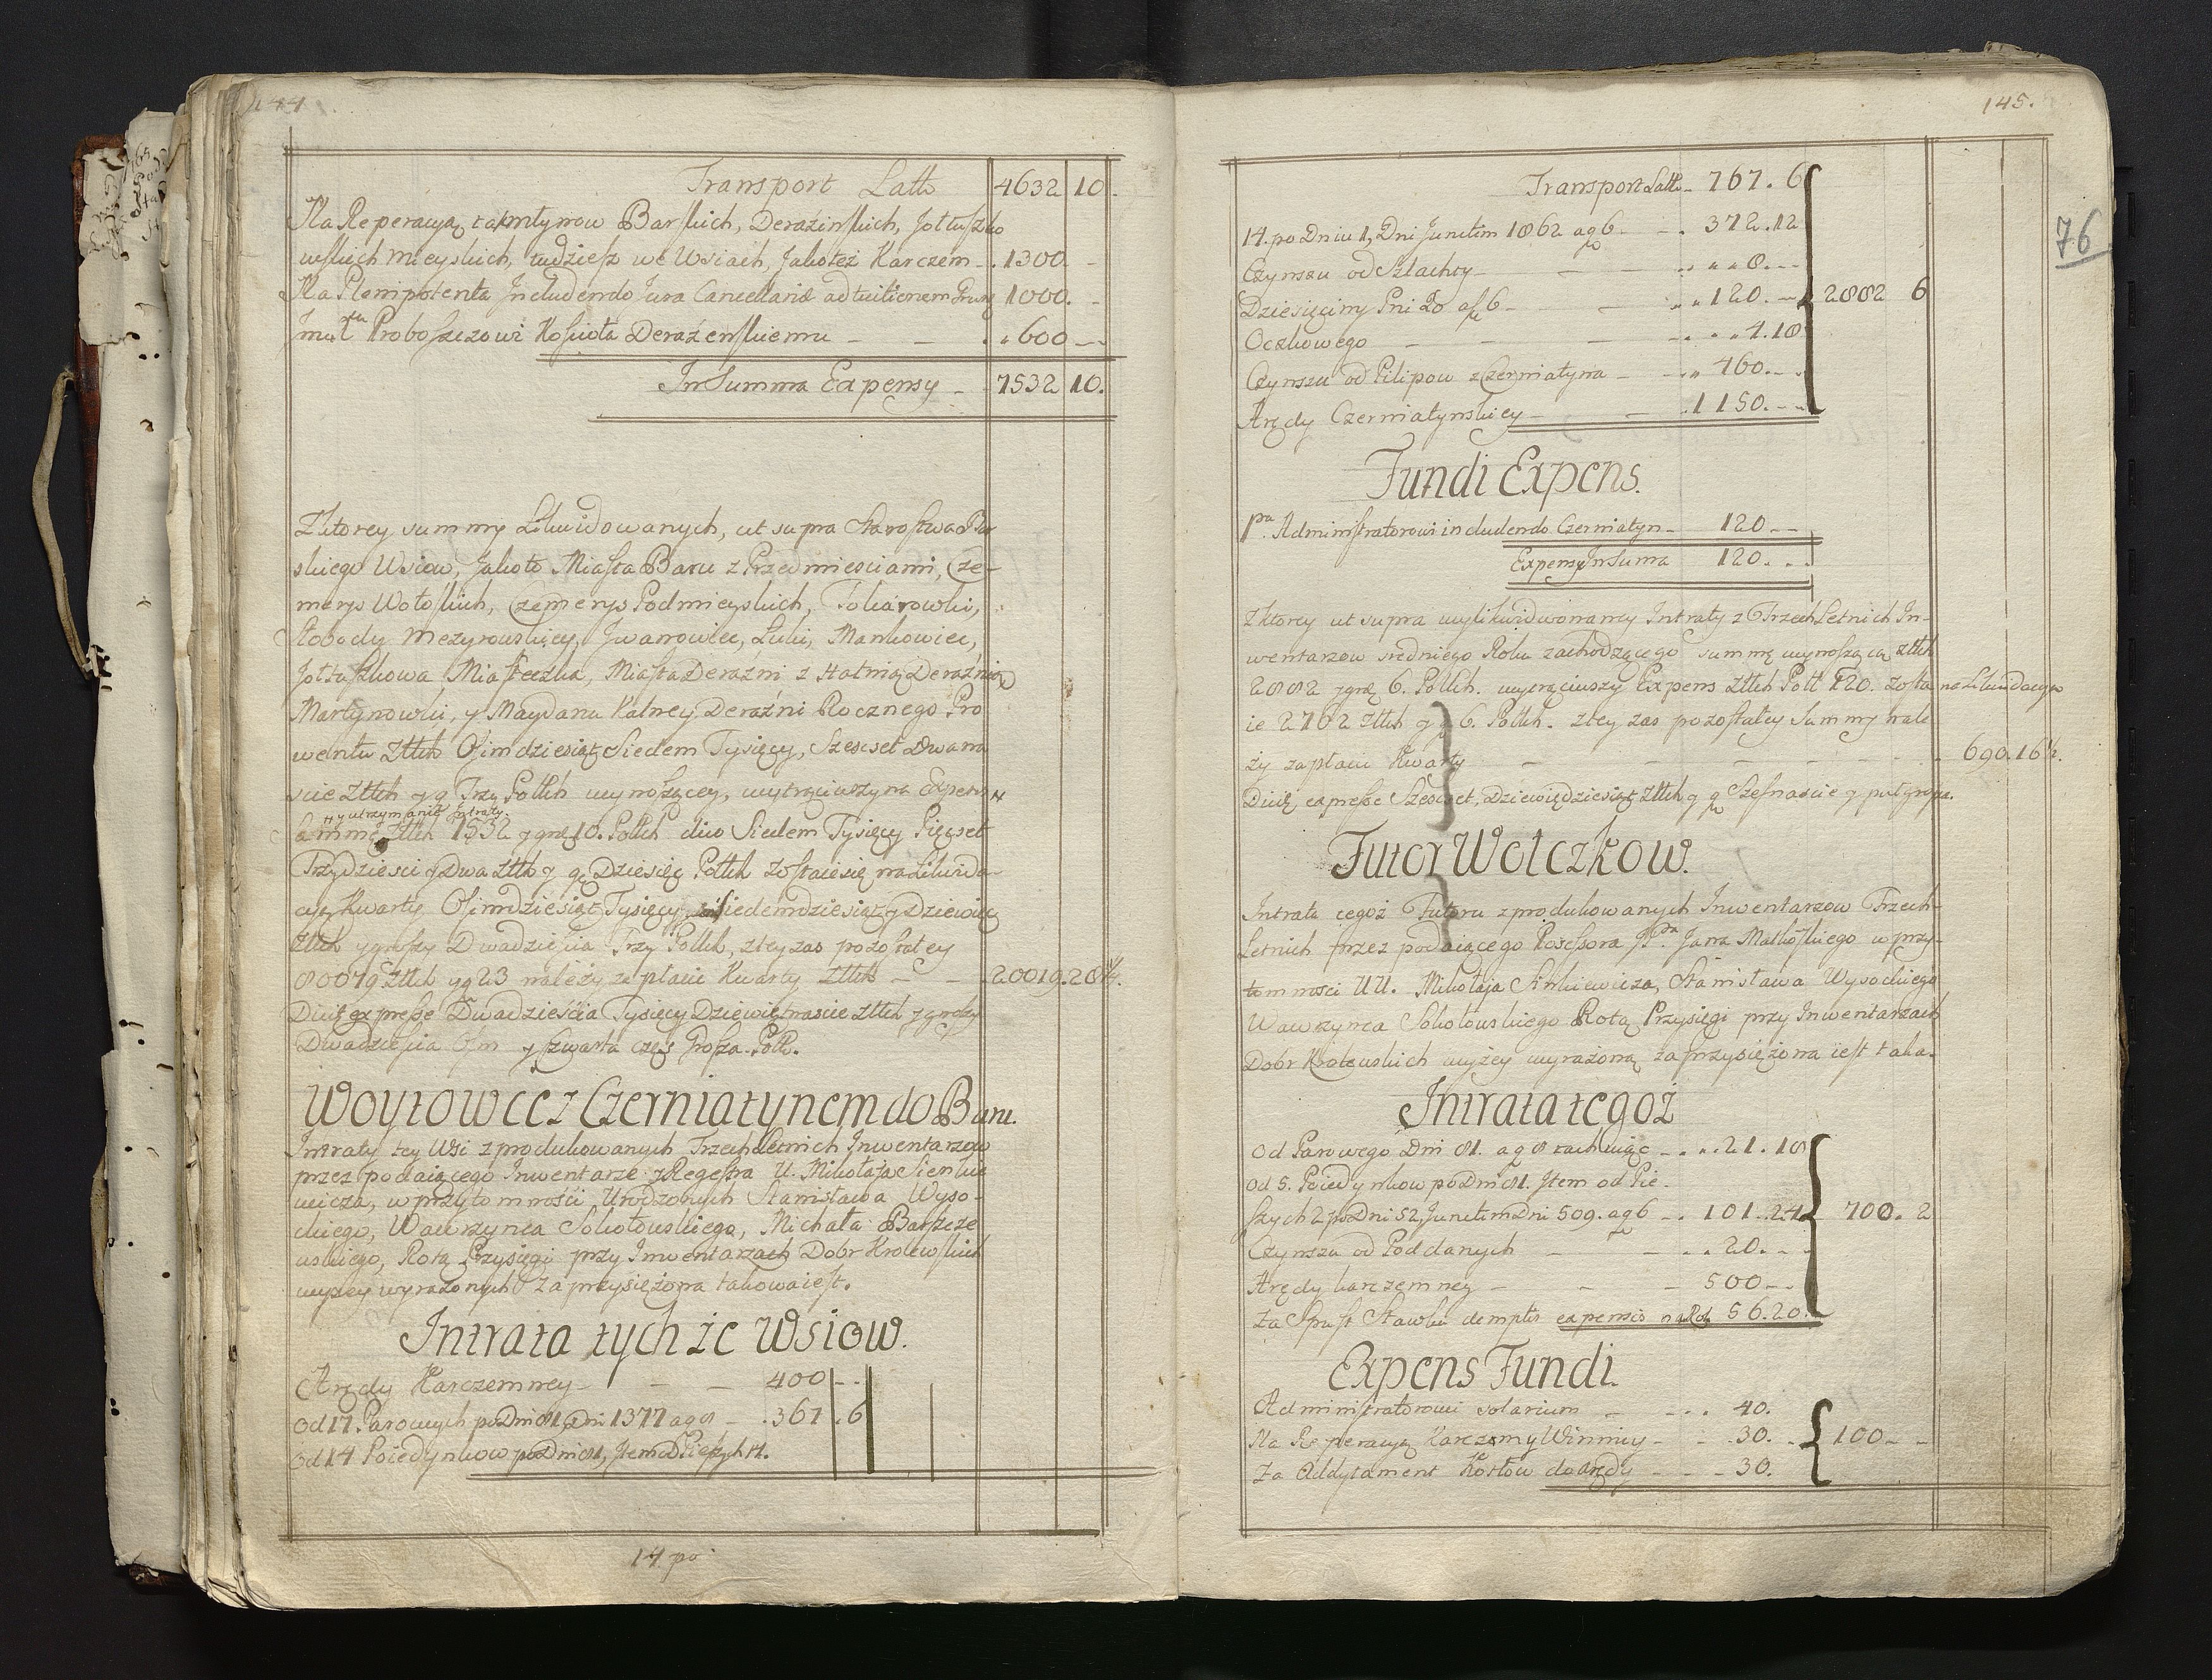 144
Transport Latt 4632 10.
Na Reperacyą tak młynow Barſkich, Derażinſkich, Jołtuſzko
wſkich Mieyskich, tudzieſz we Wsiach, Jakoteż Karczem - . 1300. -
Na Plenipotenta Includendo Jura Cancellariæ ad tuitionem 1000. -
Proboſzczowi Koſcioła Derażenſkiemu - - . 600 --
In Summa Expensy - 7532 10.
Z ktorey summy Likwidowanych, ut supra Staroſtwa Bar
skiego Wsiow, Jakoto Miaſta Baru z Przedmiesciami, Cze-
merys Wołoſkich, Czemerys Podmieyskich, Tokarowki,
Słobody Mezyrowskiey, Jwanowiec, Łuki, Mankowiec,
Jołtuſzkowa Miaſteczka, Miaſta Derażni z Halną Derażnią
Martynowki, y Maydanu Halney Derażni Rocznego Pro
wentu Złłch Oſimdziesiąt Siedem Tysięcy, Szescset Dwana
scie Złłch y g Trzy Pollch wynoſzącey, wytrąciwszy na Expens
y utrzymanie Intraty
summę Złłch 7532 y grę 10. Pollch dico Siedem Tysięcy Pięcset
Trzydziesci y Dwa Złłch y g Dziesięć Pollch zoſtaiesię na Likwida-
cyą Kwarty Oſimdziesiąt Tysięcy, siedemdziesiąt y Dziewięć
Złłch y groſzy Dwadzieſcia Trzy Pollch, z tey zas pozoſtałey
80079 Złłch y g 23 należy zepłacić Kwarty Złłch - - 20019.28¼.
Dico expreſse Dwadzieścia Tysięcy Dziewiętnascie Złłch y groſzy
Dwadzieſcia Oſm y Czwarta częs Groſza Poll.
Woytowce z Czerniatynem do Baru.
Intraty tey Wsi z produkowanych Trzech Letnich Inwentarzow
przez podaiącego Inwentarze y Regeſtra U. Mikołaja Sienkie
wicza, w przytomności Urodzonych Stanisława Wyso-
ckiego, Wawrzynca Sokołowskiego, Michała Barſzcze
wskiego, Rotą Przysięgi przy Inwentarzach Dobr Krolewſkich
wyzey wyrażonych zaprzysiężona takowa ieſt.
Intrata tychże Wsiow.
Arędy Karczemney - - - 400 --
Od 17. Parowych po Dni 81, Dni 1377 a g 8 - . 367 . 6
Od 14 Poiedynkow po Dni 81, Item od Pieſzych 14.
14. po
145.
76
Transport Latt - 767. 6
14. po Dniu 1, Dni Junctim 1862 a g 6 - - . 372.12
Czynszu od Szlachty - - - . . . 8. --
Dziesięciny Pni 20 a fl 6 - - - . . 120. --
2882 6
Oczkowego - - - . . . 4.18
Czynszu od Pilipow z Czerniatyna - - . . 460. --
Arędy Czerniatynskiey - - . 1150. --
Fundi Expens.
Pu. Adminiſtratorowi includendo Czerniatyn - 120 --
Expensy In Suma 120. . .
Z ktorey ut supra wylikwidowaney Intraty z Trzech Letnich In-
wentarzow sredniego Roku zachodzącego summę wynoſzącą Złłch
2882 y grę 6. Pollch. wytrąciwszy Expens Złłch Poll 120. zosta na Likwidacye
ie 2762 Złłch y g 6. Pollch. z tey zas pozoſtałey Summy nale
ży zapłacić Kwarty - - - - - - - - 690.16½.
Dico expreſse Szescset, Dziewiędziesiąt Złłch y g Szeſnascie y pulgroſza.
Futor Wołczkow.
Intrata tegoż Futoru z produkowanych Inwentarzow Trzech-
Letnich przez podaiącego Poseſsora Jana Malkoſkiego w przy-
tomnosci UU. Mikołaja Sinkiewicza, Stanisława Wysockiego,
Wawrzynca Sokołowskiego Rotą Przysięgi przy Inwentarzach
Dobr Krolewskich wyżey wyrażoną zaprzysiężona ieſt taka.
Intrata tegoż
Od Parowego Dni 81. a g 8 rachuiąc - . . 21. 18
Od 5. Poiedynkow po Dni 81. Item od Pie-
ſzych 2 po Dni 52, Junctim Dni 509. a g 6 - . 101.24 700. 2
Czynszu od Poddanych - - . . 20. --
Arędy karczemney - - - 500 --
Za Spuſt Stawku demptis expensis na Rok 56.20.
Expens Fundi.
Adminiſtratorowi solarium - - . . 40.
Na Reperacyą Karczmy Winnicy - - . 30. . 100 - -
Za Addytament Kotłow do Arędy - - - 30.